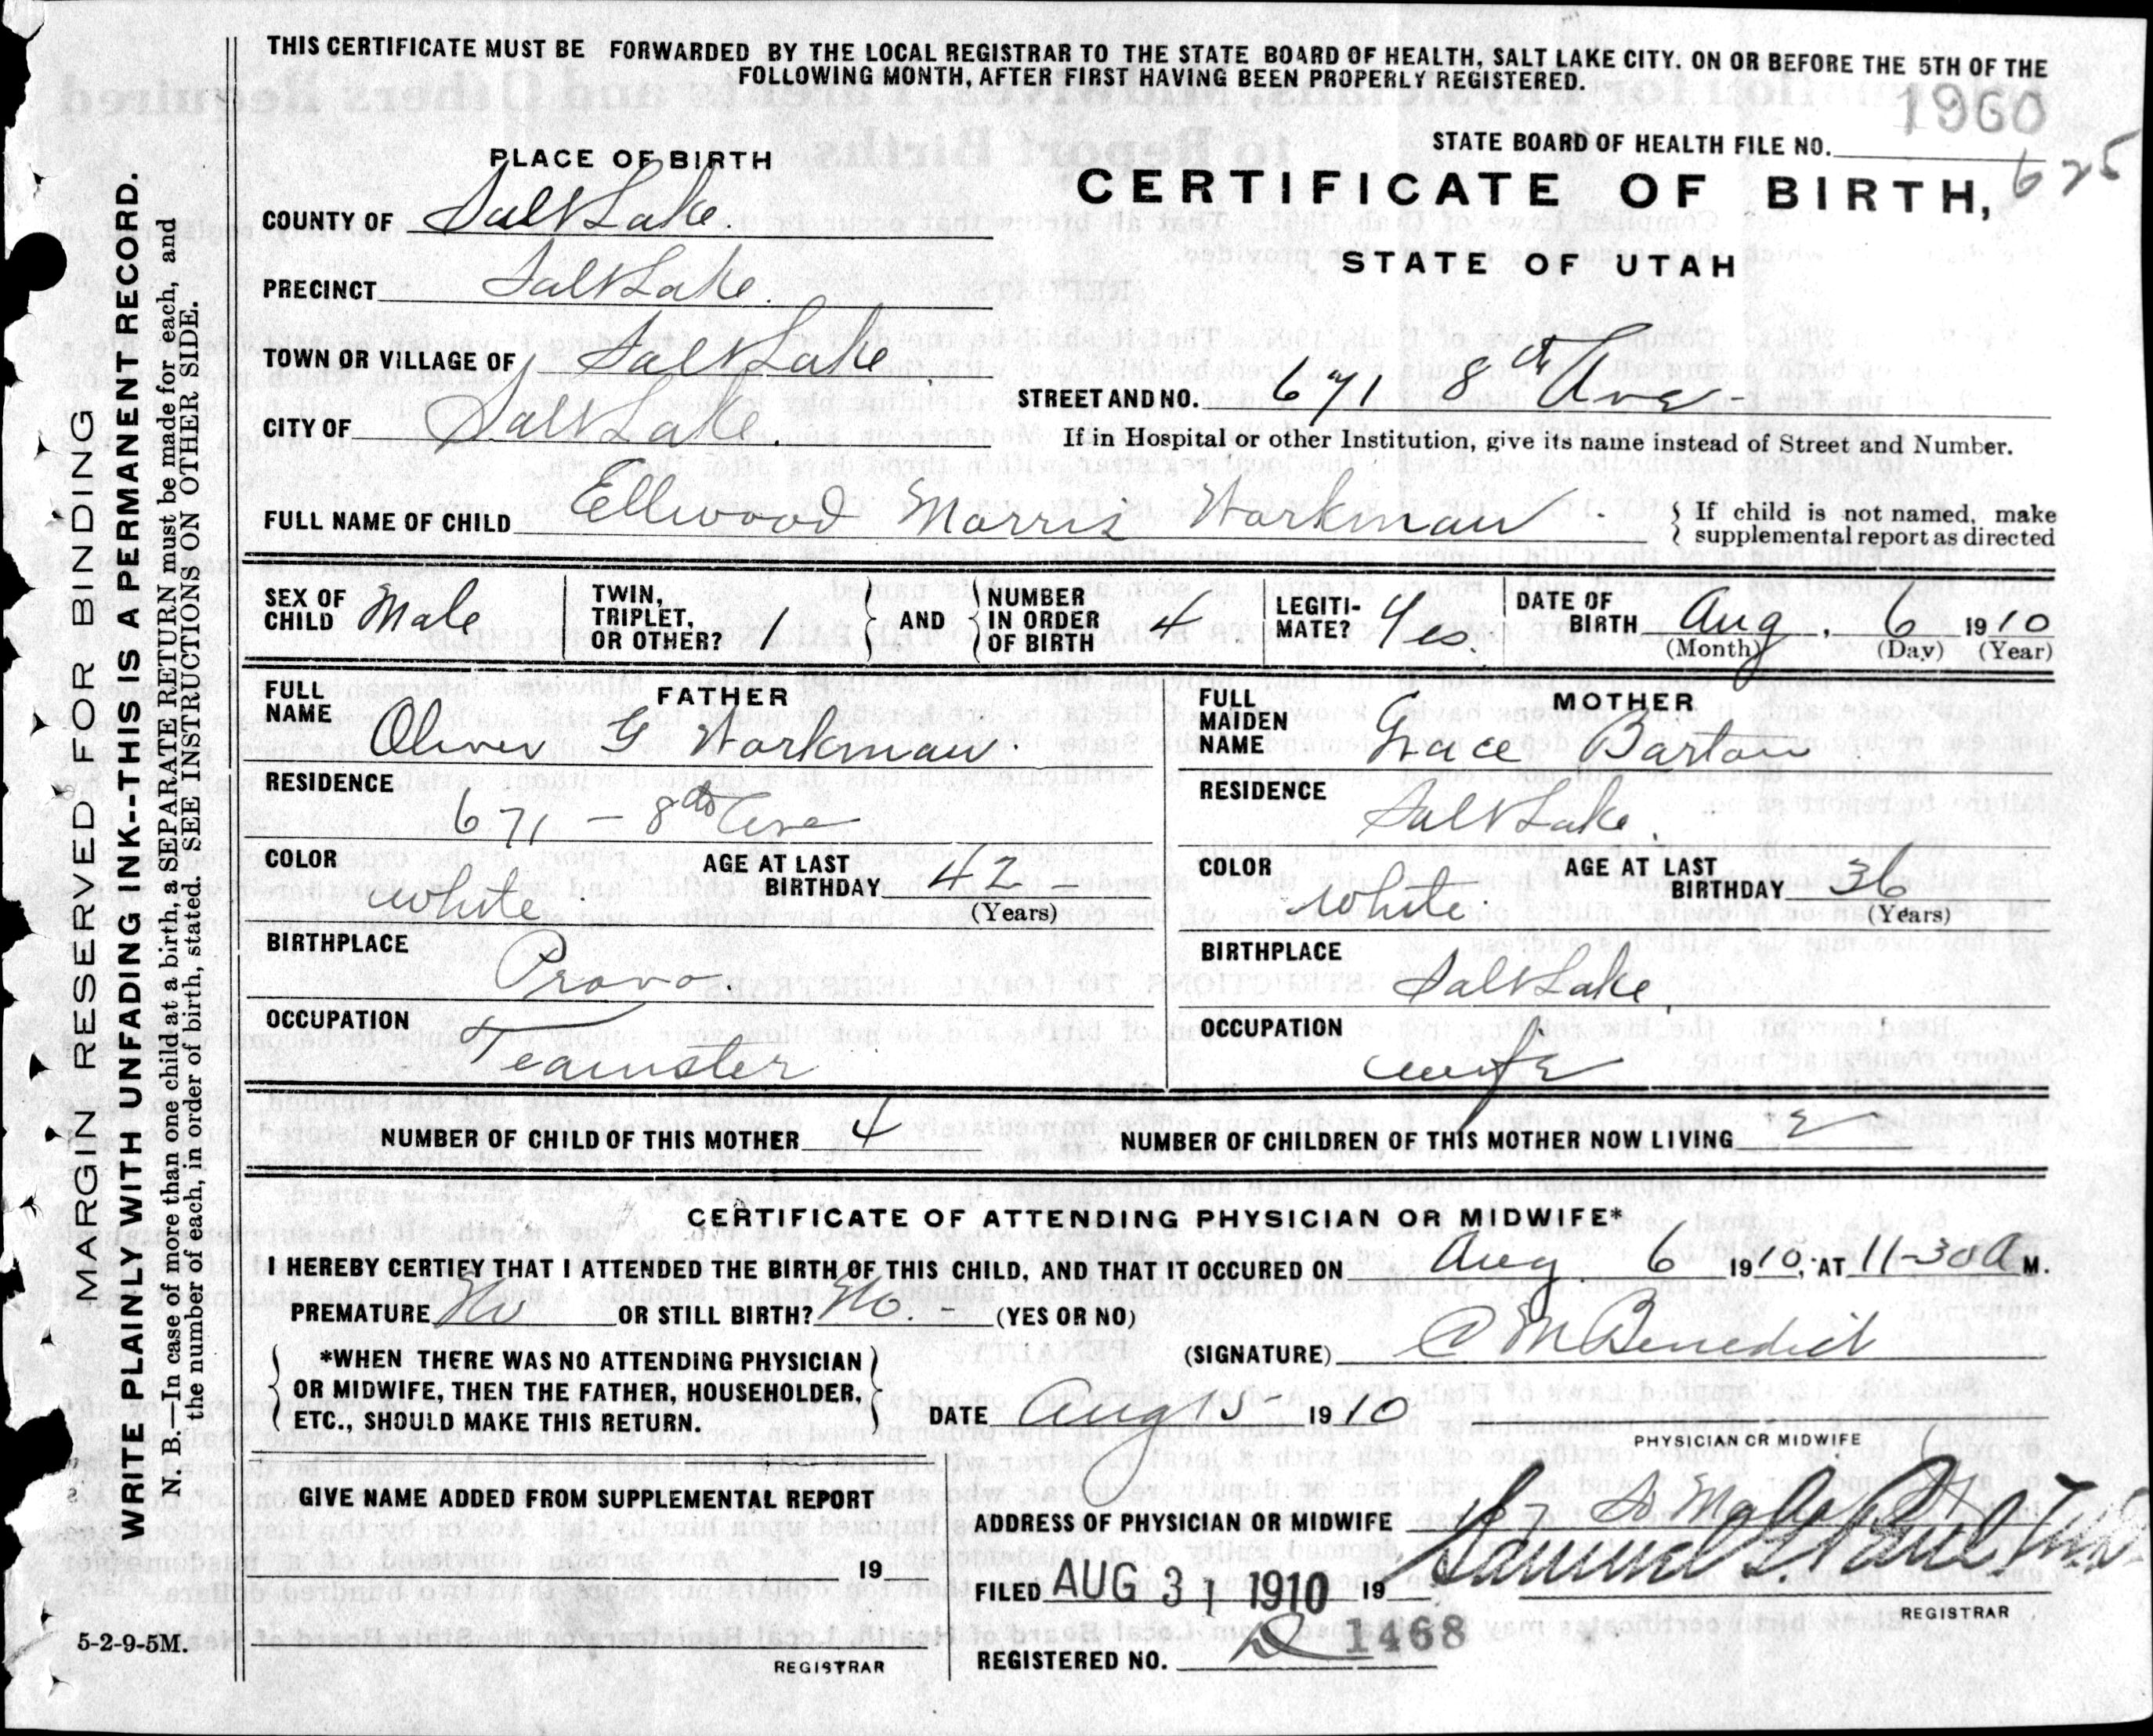 THIS CERTIFICATE MUST BE FORWARDED BY THE LOCAL REGISTRAR TO THE STATE BOARD OF HEALTH, SALT LAKE CITY. ON OR BEFORE THE 5TH OF THE
FOLLOWING MONTH, AFTER FIRST HAVING BEEN PROPERLY REGISTERED.
1960
STATE BOARD OF HEALTH FILE NO.
625
CERTIFICATE OF BIRTH,
STATE OF UTAH
PLACE OF BIRTH
COUNTY OF Salt Lake.
PRECINCT Salt Lake.
TOWN OR VILLAGE OF Salt Lake.
CITY OF Salt Lake.
STREET AND NO. 671 8th Ave-
If in Hospital or other Institution, give its name instead of Street and Number.
FULL NAME OF CHILD Ellwood Morris Workman.
If child is not named, make
supplemental report as directed
SEX OF CHILD Male
TWIN, TRIPLET, OR OTHER? 1
AND NUMBER IN ORDER OF BIRTH 4
LEGITI-MATE? Yes.
DATE OF BIRTH Aug. 6 1910
(Month) (Day) (Year)
FATHER
FULL NAME Oliver G Workman.
RESIDENCE
671 - 8th Ave
COLOR white.
AGE AT LAST BIRTHDAY 42 -
(Years)
BIRTHPLACE Provo
OCCUPATION Teamster
MOTHER
FULL MAIDEN NAME Grace Barton
RESIDENCE
Salt Lake.
COLOR White.
AGE AT LAST BIRTHDAY 36
(Years)
BIRTHPLACE Salt Lake.
OCCUPATION wife
NUMBER OF CHILD OF THIS MOTHER 4
NUMBER OF CHILDREN OF THIS MOTHER NOW LIVING
CERTIFICATE OF ATTENDING PHYSICIAN OR MIDWIFE*
I HEREBY CERTIFY THAT I ATTENDED THE BIRTH OF THIS CHILD, AND THAT IT OCCURED ON Aug. 6 1910, AT 11-30 A M.
PREMATURE No OR STILL BIRTH? No. - (YES OR NO)
*WHEN THERE WAS NO ATTENDING PHYSICIAN
OR MIDWIFE, THEN THE FATHER, HOUSEHOLDER,
ETC., SHOULD MAKE THIS RETURN.
(SIGNATURE) C M Benedict
DATE Aug 15 1910
PHYSICIAN OR MIDWIFE
GIVE NAME ADDED FROM SUPPLEMENTAL REPORT
19
REGISTRAR
ADDRESS OF PHYSICIAN OR MIDWIFE
FILED AUG 31 1910 19
Samuel G. Paul
REGISTRAR
REGISTERED NO. 1468
5-2-9-5M.
MARGIN RESERVED FOR BINDING
WRITE PLAINLY WITH UNFADING INK--THIS IS A PERMANENT RECORD.
N. B.—In case of more than one child at a birth, a SEPARATE RETURN must be made for each, and
the number of each, in order of birth, stated. SEE INSTRUCTIONS ON OTHER SIDE.